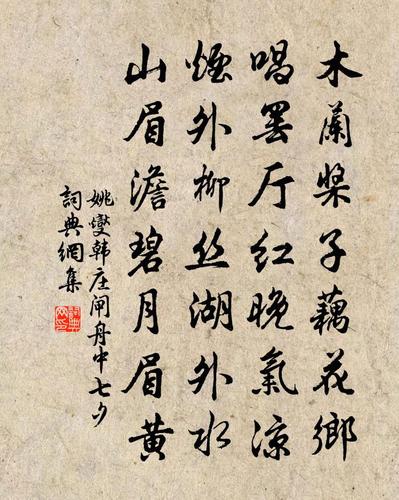 木蘭槳子藕花鄉
唱罢厅红晚氣涼
煙外柳丝湖外水
山眉澹碧月眉黄
姚燮韩庄闸舟中七夕
詞典網集